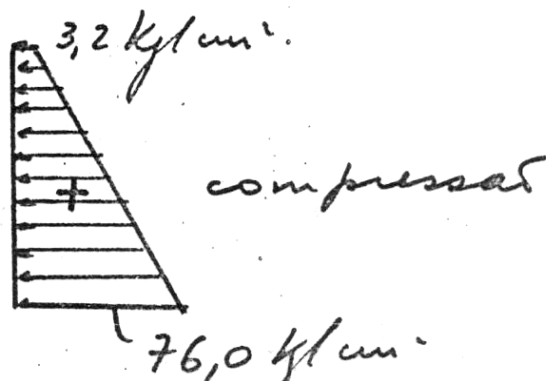 3,2 Kg/cm².
+
compressão
76,0 Kg/cm²